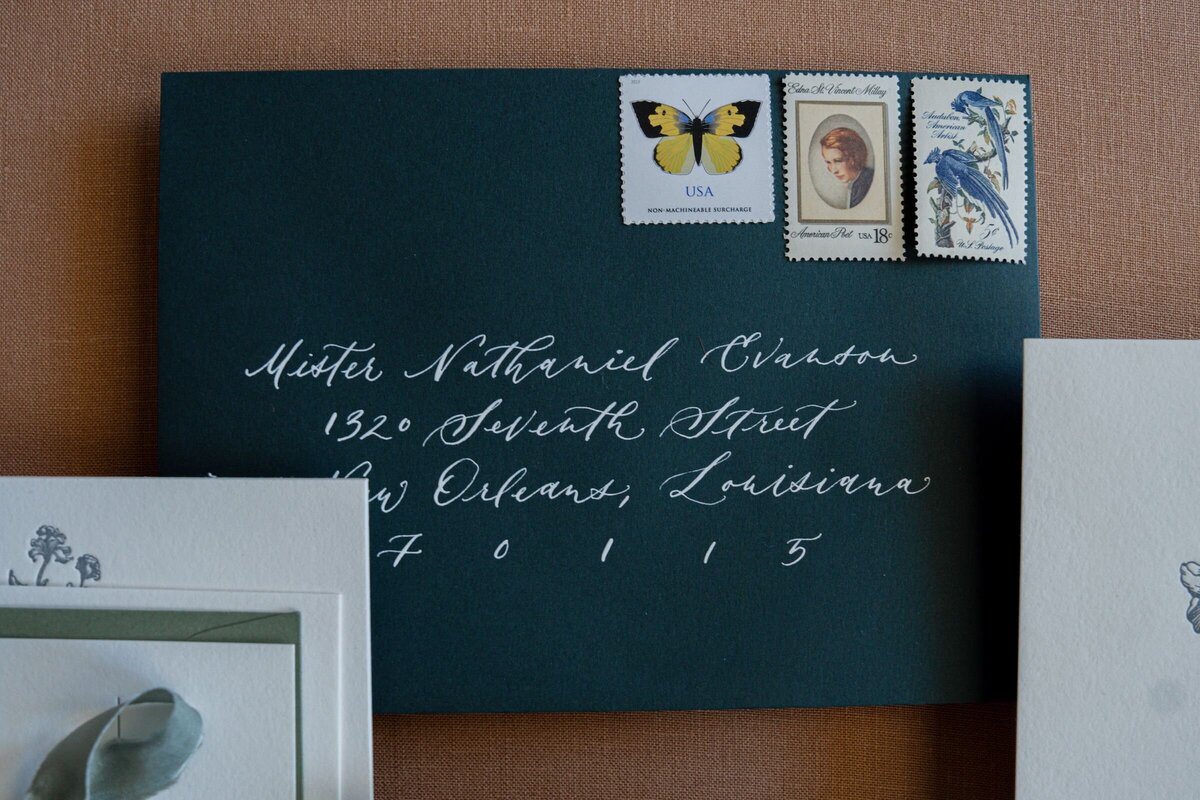 2019
USA
NON-MACHINEABLE SURCHARGE
Edna St. Vincent Millay
American Poet USA 18c
Audubon,
American
Artist
5¢
U.S. Postage
Mister Nathaniel Evanson
1320 Seventh Street
New Orleans, Louisiana
7 0 1 1 5